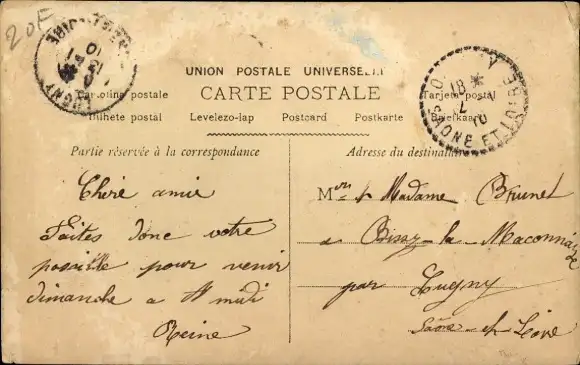 20E
LUGNY
SAONE ET LOIRE
UNION POSTALE UNIVERSELLE
CARTE POSTALE
Cartolina postale Tarjeta postal
Bilhete postal Levelezo-lap Postcard Postkarte Briefkaart
Partie réservée à la correspondance
Adresse du destinataire
Chère amie
Faites donc votre
possible pour venir
dimanche a midi
Reine
Mr et Madame Brunet
a Bissy-la-Maconnaise
par Lugny
Saône-et-Loire